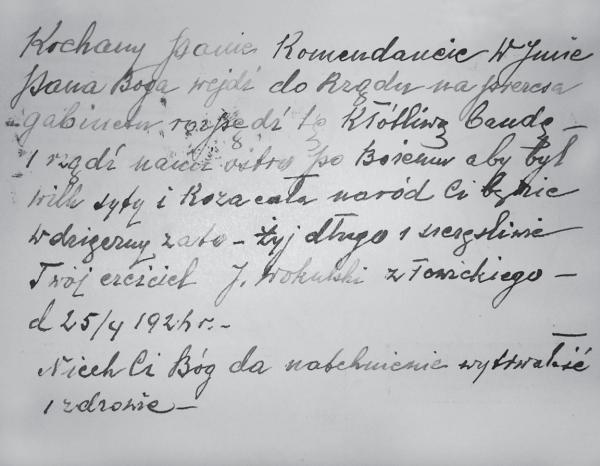 Kochany Panie Komendancie W Jmie
Pana Boga wejdź do Rządu na prezesa
gabinetu rozpędź tę Kłótliwą bandę –
i rządź nami ostro po Bożemu aby był
wilk syty i Koza cała naród Ci będzie
wdzięczny za to – żyj długo i szczęśliwie
Twój czciciel J. Wokulski z Łowickiego –
d 25/4 192 r. –
Niech Ci Bóg da natchnienie wytrwałość
i zdrowie –